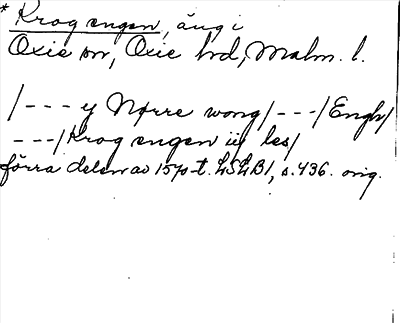 * Krog engen, äng i
Oxie sn, Oxie hrd, Malm. l.
/--- y Nørre wong/---/Engh/
---/Krog engen iij les/
förra delen av 1570-t. LSLB1, s. 436. orig.